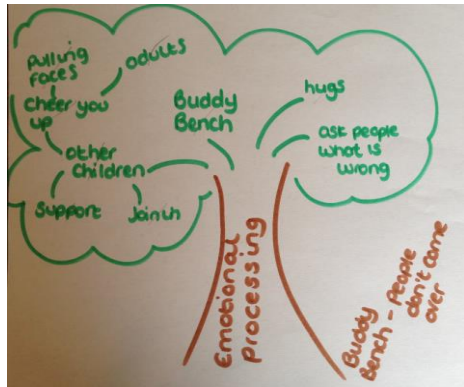 Pulling
faces
adults
Cheer you
up
Other
Children
Support
Join in
Buddy
Bench
hugs
ask people
what is
wrong
Emotional
processing
Buddy
Bench - People
don't come
over